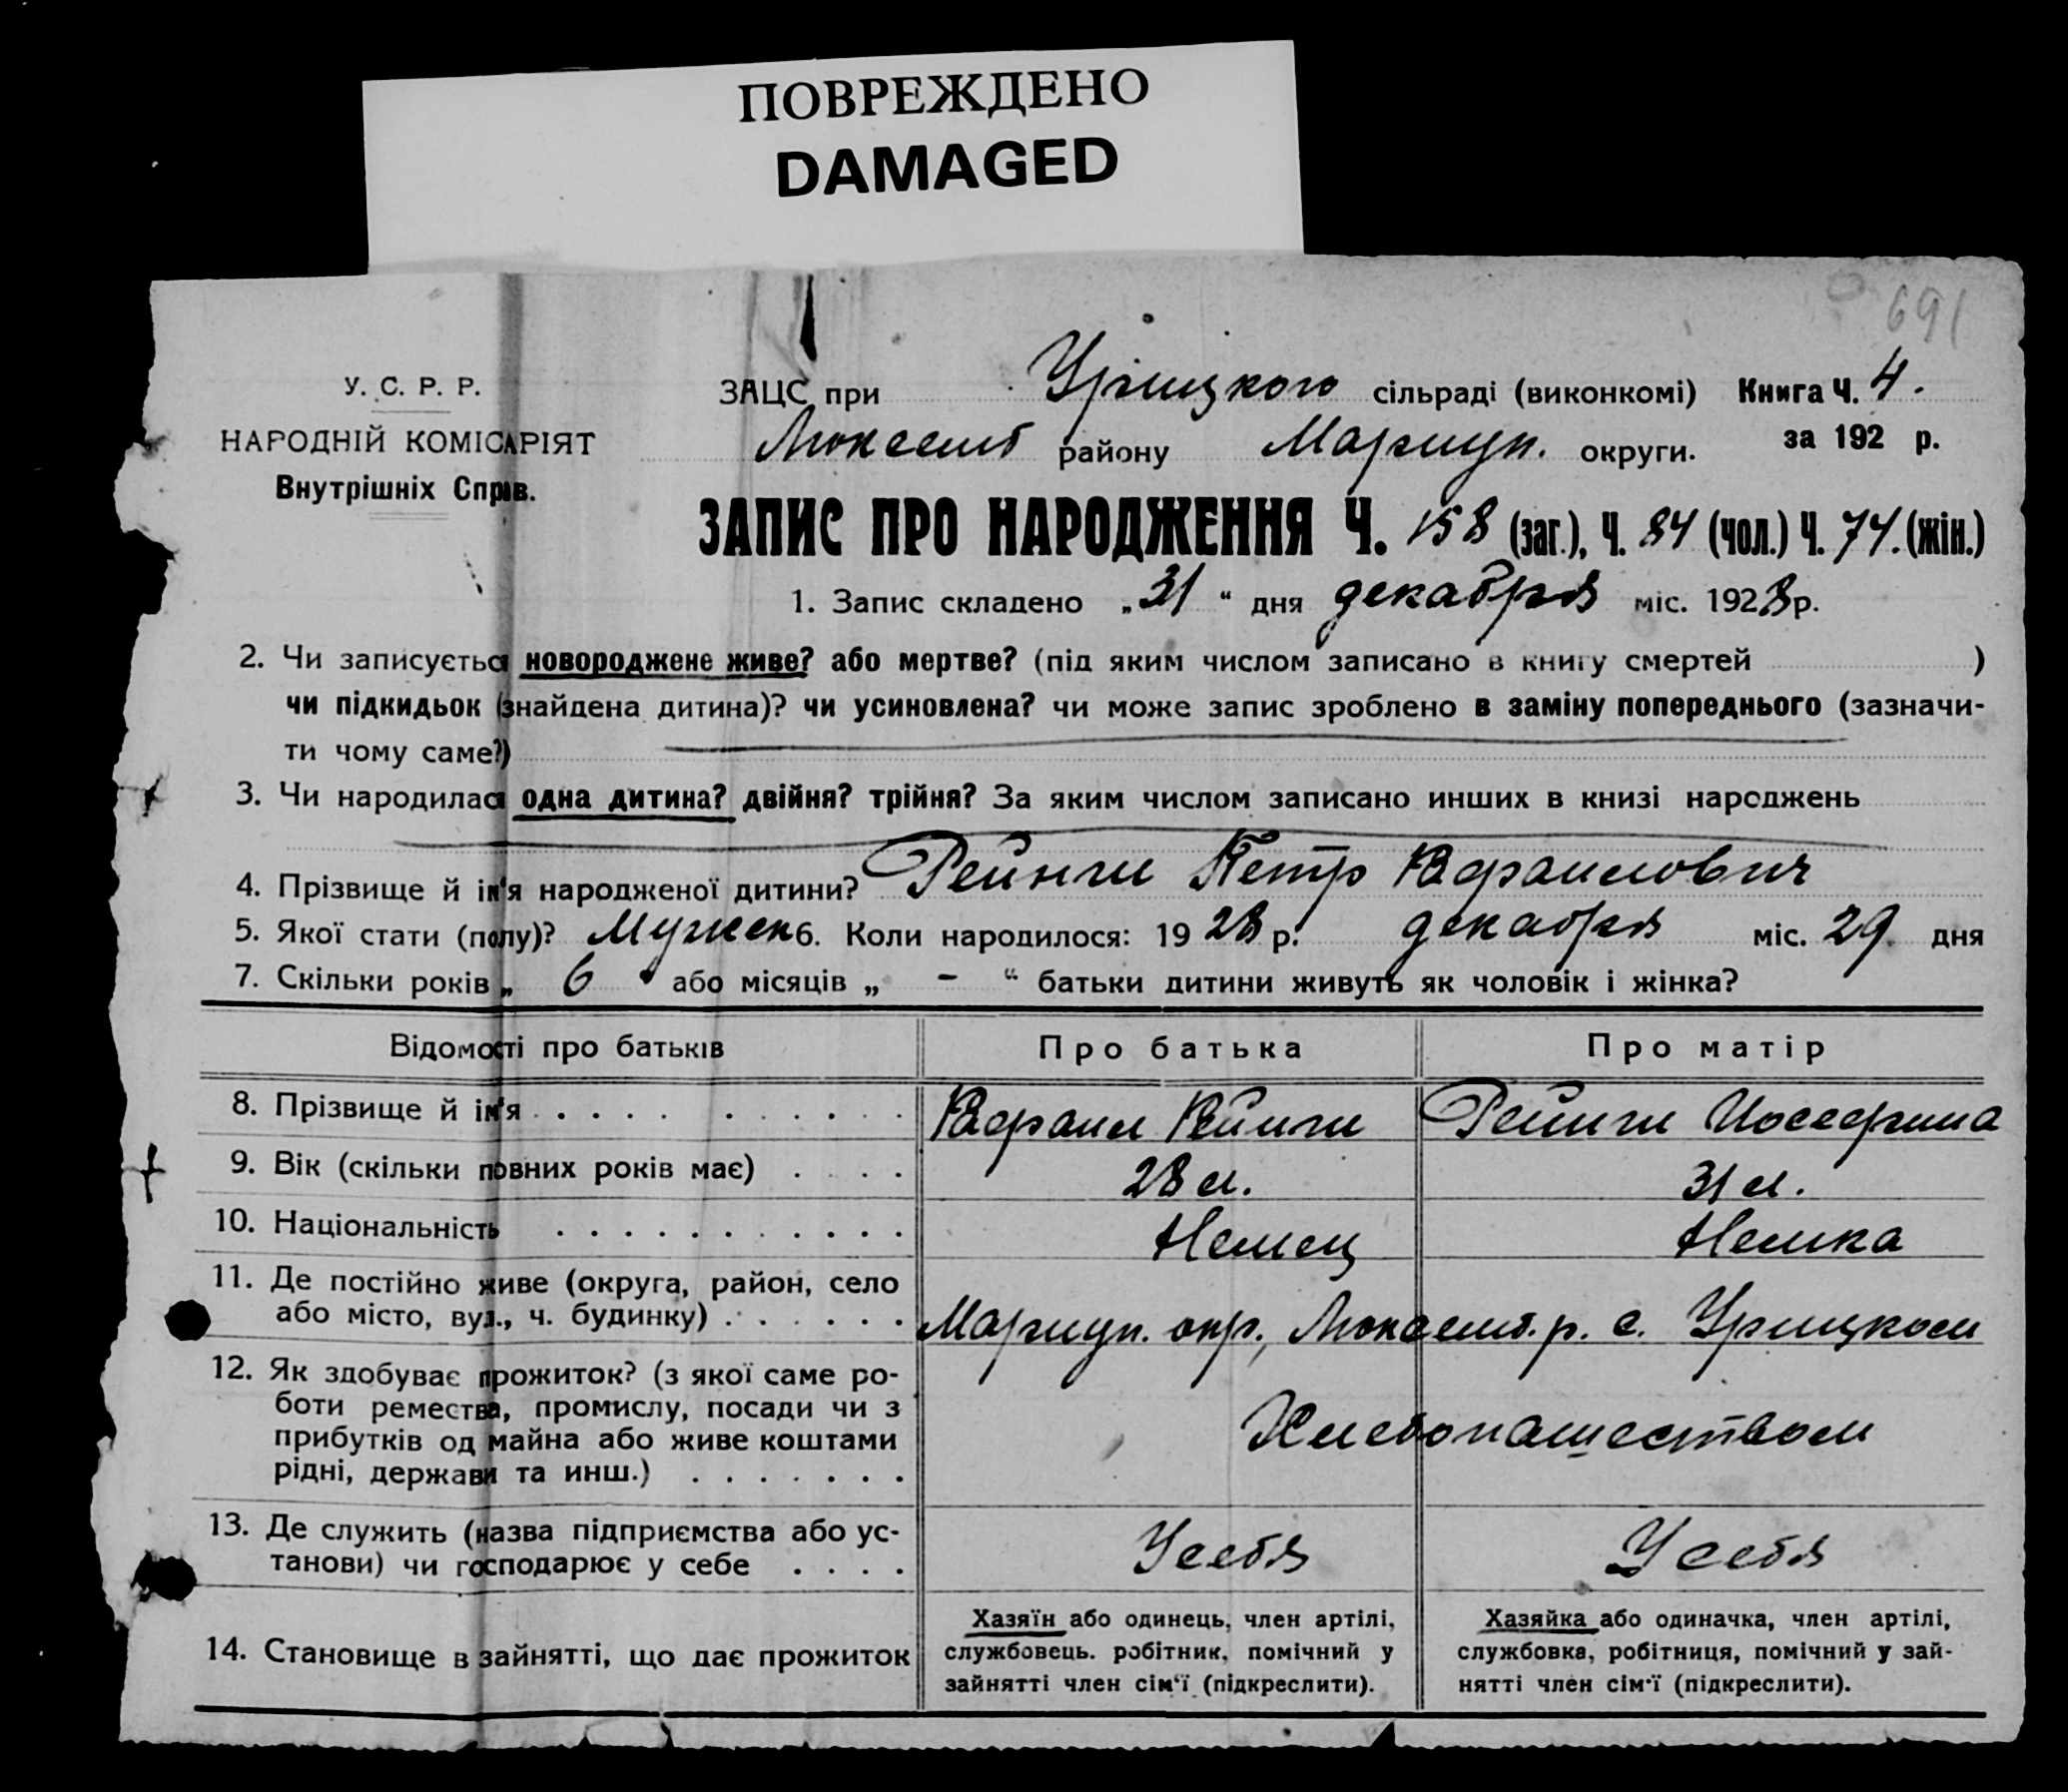 ПОВРЕЖДЕНО
DAMAGED
691
У. С. Р. Р.
НАРОДНІЙ КОМІСАРІЯТ
Внутрішніх Справ.
ЗАЦС при Урицкого сільраді (виконкомі) Книга Ч. 4.
Люксемб району Мариуп. округи. за 192 р.
ЗАПИС ПРО НАРОДЖЕННЯ Ч. 158 (заг.), Ч. 84 (чол.) Ч. 74. (жін.)
1. Запис складено „31“ дня декабря міс. 1928 р.
2. Чи записується новороджене живе? або мертве? (під яким числом записано в книгу смертей )
чи підкидьок (знайдена дитина)? чи усиновлена? чи може запис зроблено в заміну попереднього (зазначи-
ти чому саме?)
3. Чи народилася одна дитина? двійня? трійня? За яким числом записано инших в книзі народжень
4. Прізвище й ім'я народженої дитини? Рейнги Петр
5. Якої стати (полу)? Мужск 6. Коли народилося: 1928 р. декабря міс. 29. дня
7. Скільки років „ 6 “ або місяців „ - “ батьки дитини живуть як чоловік і жінка?
Відомості про батьків Про батька Про матір
8. Прізвище й ім'я . . . . . . . . . . . Рейнги
9. Вік (скільки повних років має) . . . . 28 л. 31 л.
10. Національність . . . . . . . . . . . Немец Немка
11. Де постійно живе (округа, район, село
або місто, вул., ч. будинку) . . . . . . . Мариуп. окр., Люксемб. р. с. Урицком
12. Як здобуває прожиток? (з якої саме ро-
боти ремества, промислу, посади чи з
прибутків од майна або живе коштами
рідні, держави та инш.) . . . . . . . Хлебопашеством
13. Де служить (назва підприємства або ус-
танови) чи господарює у себе . . . . У себя У себя
14. Становище в зайнятті, що дає прожиток
Хазяїн або одинець, член артілі,
службовець. робітник, помічний у
зайнятті член сім'ї (підкреслити).
Хазяйка або одиначка, член артілі,
службовка, робітниця, помічний у зай-
нятті член сім'ї (підкреслити).